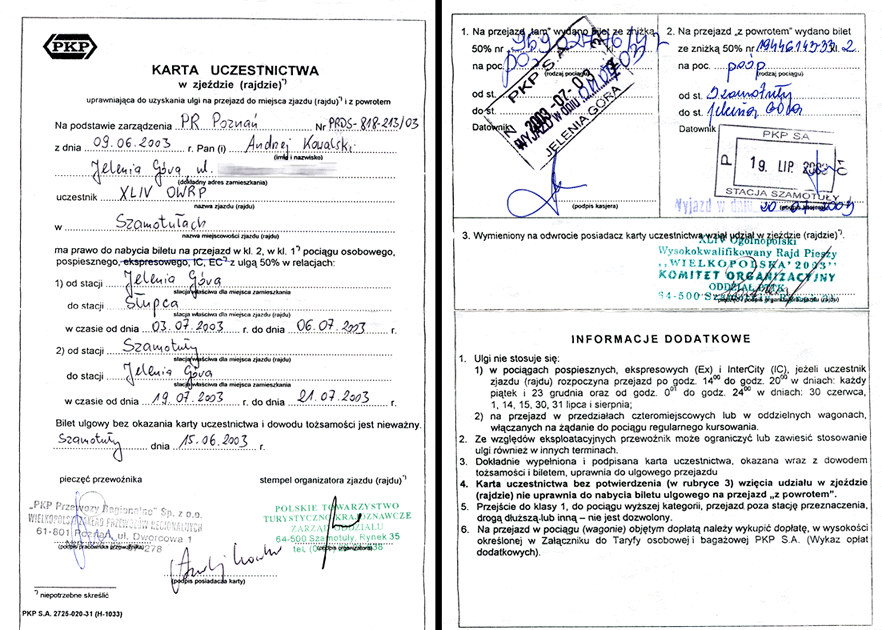 PKP
KARTA UCZESTNICTWA
w zjeździe (rajdzie)*)
uprawniająca do uzyskania ulgi na przejazd do miejsca zjazdu (rajdu)*) i z powrotem
Na podstawie zarządzenia PR Poznań Nr PRDS-818-213/03
z dnia 09.06.2003 r. Pan (i) Andrzej Kowalski
(imię i nazwisko)
Jelenia Góra, ul.
(dokładny adres zamieszkania)
uczestnik XLIV OWRP
nazwa zjazdu (rajdu)
w Szamotułach
nazwa miejscowości zjazdu (rajdu)
ma prawo do nabycia biletu na przejazd w kl. 2, w kl. 1*) pociągu osobowego,
pospiesznego, ekspresowego, IC, EC*) z ulgą 50% w relacjach:
1) od stacji Jelenia Góra
stacja właściwa dla miejsca zamieszkania
do stacji Słupca
stacja właściwa dla miejsca zjazdu (rajdu)
w czasie od dnia 03.07.2003 r. do dnia 06.07.2003 r.
2) od stacji Szamotuły
stacja właściwa dla miejsca zjazdu (rajdu)
do stacji Jelenia Góra
stacja właściwa dla miejsca zamieszkania
w czasie od dnia 19.07.2003 r. do dnia 21.07.2003 r.
Bilet ulgowy bez okazania karty uczestnictwa i dowodu tożsamości jest nieważny.
Szamotuły dnia 15.06.2003 r.
pieczęć przewoźnika stempel organizatora zjazdu (rajdu)*)
„PKP Przewozy Regionalne" Sp. z o.o.
WIELKOPOLSKI ZAKŁAD PRZEWOZÓW REGIONALNYCH
61-801 Poznań, ul. Dworcowa 1
278
(podpis pracownika przewoźnika)
POLSKIE TOWARZYSTWO
TURYSTYCZNO-KRAJOZNAWCZE
ZARZĄD ODDZIAŁU
64-500 Szamotuły, Rynek 35
(podpis organizatora)
(podpis posiadacza karty)
*) niepotrzebne skreślić
PKP S.A. 2725-020-31 (H-1033)
1. Na przejazd „tam" wydano bilet ze zniżką
50% nr
na poc.
(rodzaj pociągu)
od st.
do st.
Datownik
PKP S.A.
2003-07-03
WYJAZD W DNIU
JELENIA GÓRA
(podpis kasjera)
2. Na przejazd „z powrotem" wydano bilet
ze zniżką 50% nr kl. 2
na poc. posp
(rodzaj pociągu)
od st. Szamotuły
do st. Jelenia Góra
Datownik
PKP SA
19. LIP. 2003
STACJA SZAMOTUŁY
Wyjazd w dniu 20.07.2003
3. Wymieniony na odwrocie posiadacz karty uczestnictwa wziął udział w zjeździe (rajdzie)*).
XLIV Ogólnopolski
Wysokokwalifikowany Rajd Pieszy
„WIELKOPOLSKA'2003"
KOMITET ORGANIZACYJNY
ODDZIAŁ PTTK
64-500 Szamotuły
INFORMACJE DODATKOWE
1. Ulgi nie stosuje się:
1) w pociągach pospiesznych, ekspresowych (Ex) i InterCity (IC), jeżeli uczestnik
zjazdu (rajdu) rozpoczyna przejazd po godz. 14⁰⁰ do godz. 20⁰⁰ w dniach: każdy
piątek i 23 grudnia oraz od godz. 0⁰¹ do godz. 24⁰⁰ w dniach: 30 czerwca,
1, 14, 15, 30, 31 lipca i sierpnia;
2) na przejazd w przedziałach czteromiejscowych lub w oddzielnych wagonach,
włączanych na żądanie do pociągu regularnego kursowania.
2. Ze względów eksploatacyjnych przewoźnik może ograniczyć lub zawiesić stosowanie
ulgi również w innych terminach.
3. Dokładnie wypełniona i podpisana karta uczestnictwa, okazana wraz z dowodem
tożsamości i biletem, uprawnia do ulgowego przejazdu
4. Karta uczestnictwa bez potwierdzenia (w rubryce 3) wzięcia udziału w zjeździe
(rajdzie) nie uprawnia do nabycia biletu ulgowego na przejazd „z powrotem".
5. Przejście do klasy 1, do pociągu wyższej kategorii, przejazd poza stację przeznaczenia,
drogą dłuższą lub inną – nie jest dozwolony.
6. Na przejazd w pociągu (wagonie) objętym dopłatą należy wykupić dopłatę, w wysokości
określonej w Załączniku do Taryfy osobowej i bagażowej PKP S.A. (Wykaz opłat
dodatkowych).